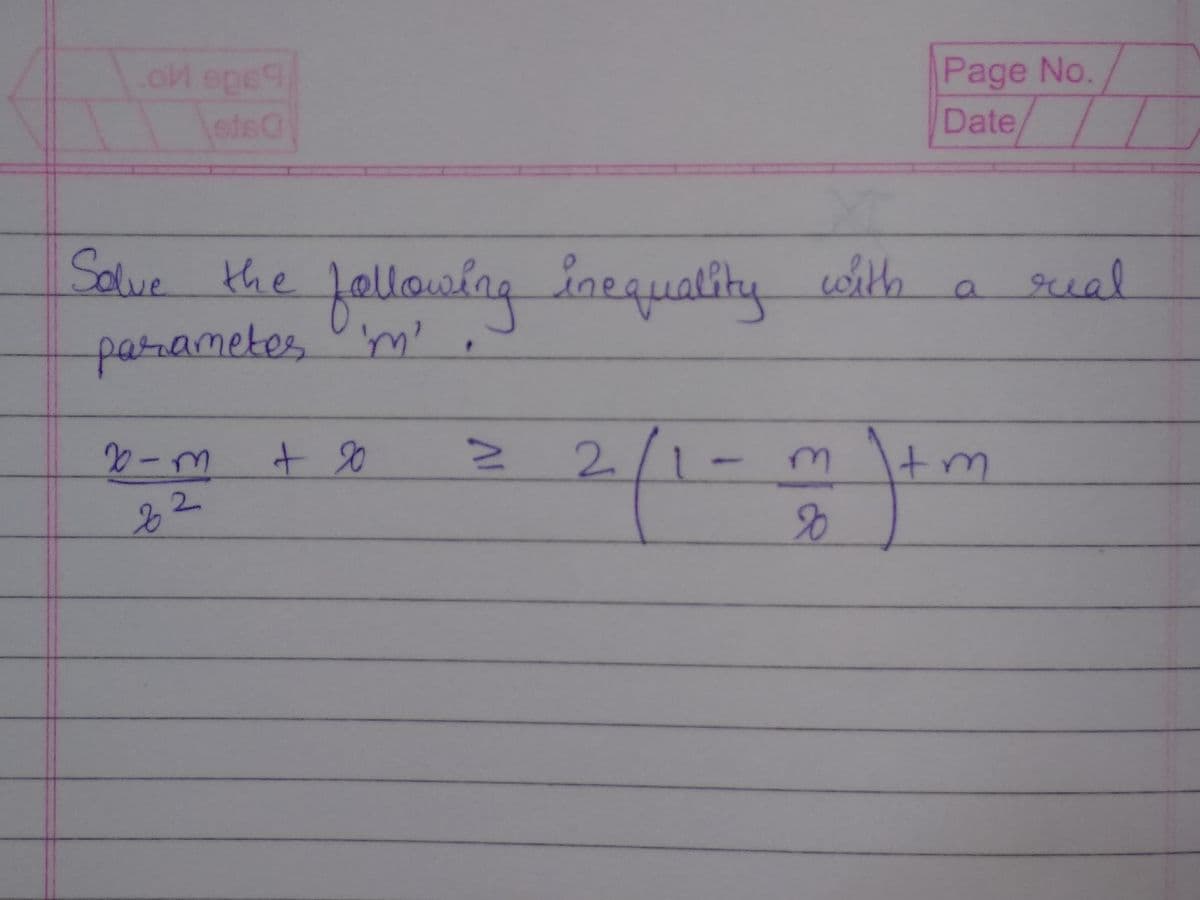 Page No.
Date
Solve the following inequality with a real
parameter 'm'.
x-m/x² + x ≥ 2(1 - m/x) + m